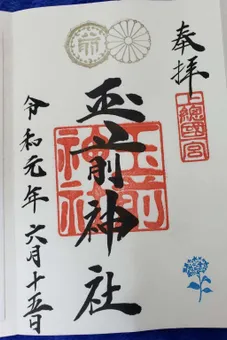 奉拝
上總國一宮
玉前神社
玉前神社
令和元年六月十五日
前